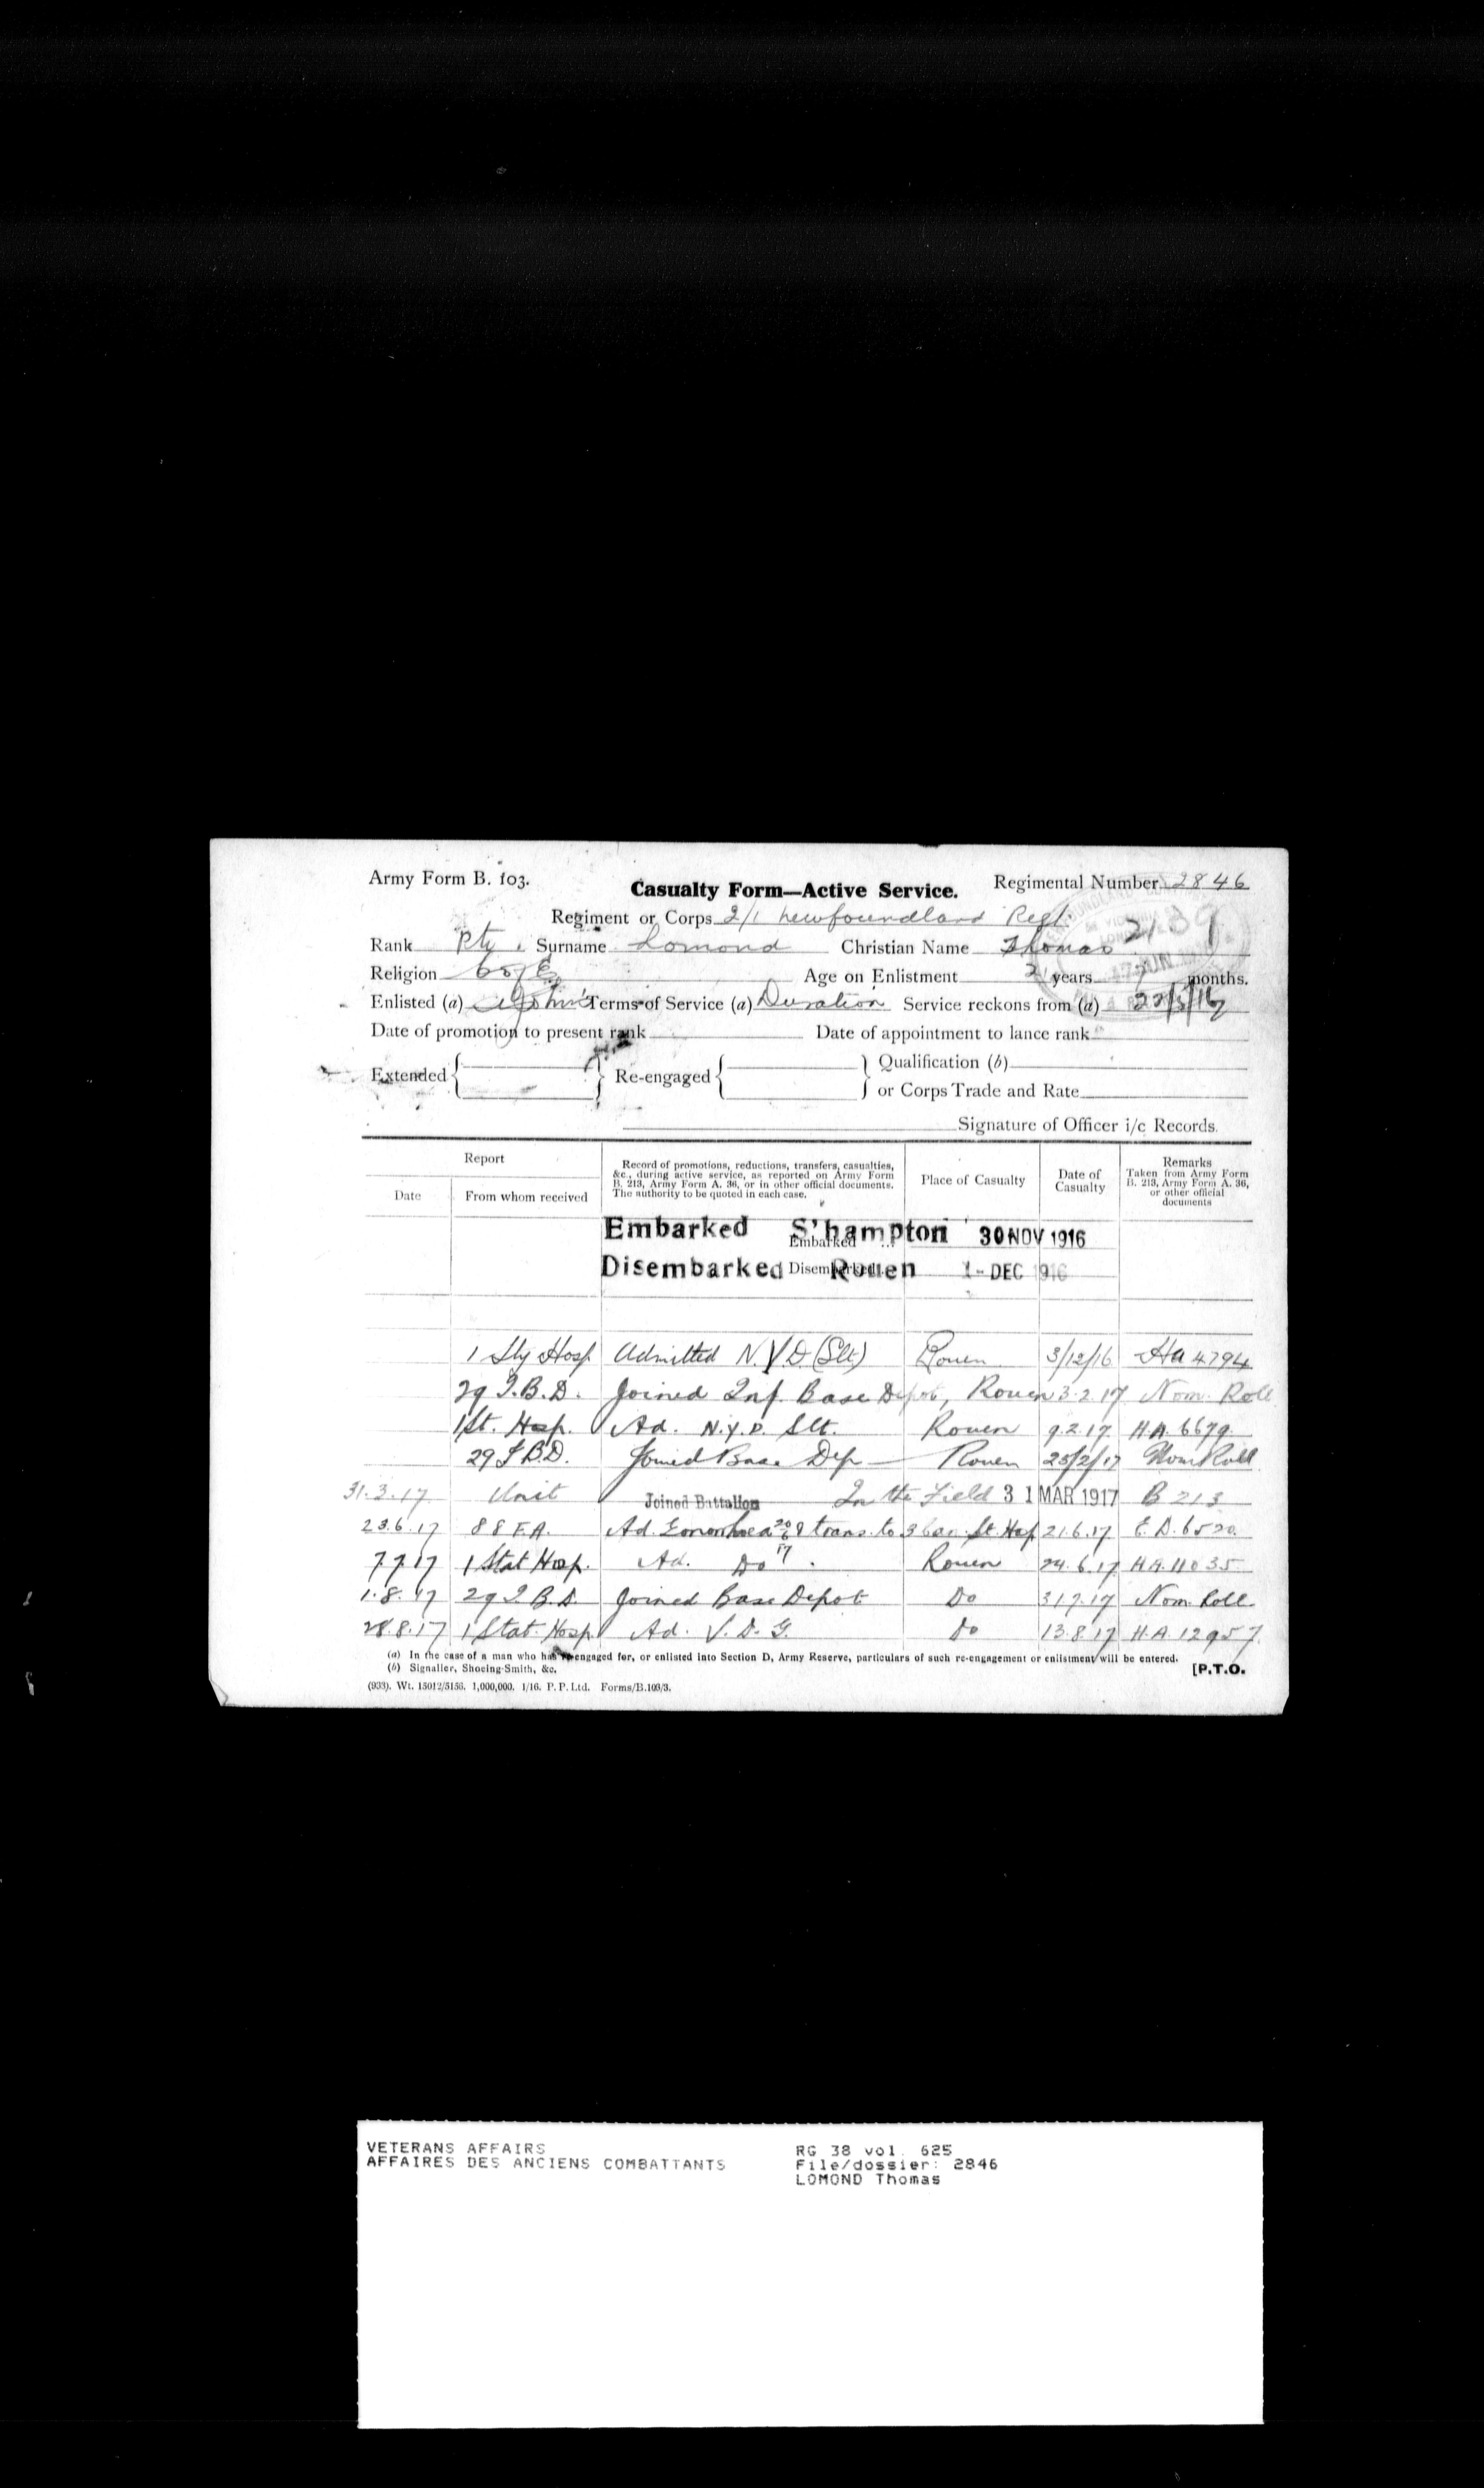 Army Form B. 103.
Casualty Form—Active Service.
Regimental Number 2846
Regiment or Corps 2/1 Newfoundland Regt.
Rank Pte. Surname Lomond Christian Name Thomas
Religion C of E Age on Enlistment years months.
Enlisted (a) St John's Terms of Service (a) Duration Service reckons from (a)
Date of promotion to present rank Date of appointment to lance rank
Extended { } Re-engaged { } Qualification (b)
or Corps Trade and Rate
Signature of Officer i/c Records.
Report
Date From whom received
Record of promotions, reductions, transfers, casualties, &c., during active service, as reported on Army Form B. 213, Army Form A. 36, or in other official documents. The authority to be quoted in each case.
Place of Casualty
Date of Casualty
Remarks Taken from Army Form B. 213, Army Form A. 36, or other official documents
Embarked S'hampton 30 NOV 1916
Embarked
Disembarked Rouen 1- DEC 1916
1 Sty Hosp Admitted N.Y.D. (Slt) Rouen 3/12/16 HA 4794
29 I.B.D. Joined Inf. Base Depot, Rouen 3.2.17 Nom. Roll
1 St. Hosp. Ad. N.Y.D. Slt. Rouen 9.2.17 H.A. 6679
29 I.B.D. Joined Base Dep Rouen 23/2/17 Nom Roll
31.3.17 Unit Joined Battalion In the Field 31 MAR 1917 B 213
23.6.17 88 F.A. Ad. Gonorrhoea 20/6/17 & trans. to 3 Can. St. Hosp 21.6.17 E.D. 6520
7.7.17 1 Stat Hosp. Ad. Do. Rouen 24.6.17 H.A. 11035
1.8.17 29 I.B.D. Joined Base Depot Do 31.7.17 Nom. Roll.
28.8.17 1 Stat. Hosp Ad. V.D.G. Do 13.8.17 H.A. 12957
(a) In the case of a man who has re-engaged for, or enlisted into Section D, Army Reserve, particulars of such re-engagement or enlistment will be entered.
(b) Signaller, Shoeing-Smith, &c.
[P.T.O.
(933). Wt. 15012/5156. 1,000,000. 1/16. P. P. Ltd. Forms/B.103/3.
VETERANS AFFAIRS
AFFAIRES DES ANCIENS COMBATTANTS
RG 38 vol. 625
File/dossier: 2846
LOMOND Thomas